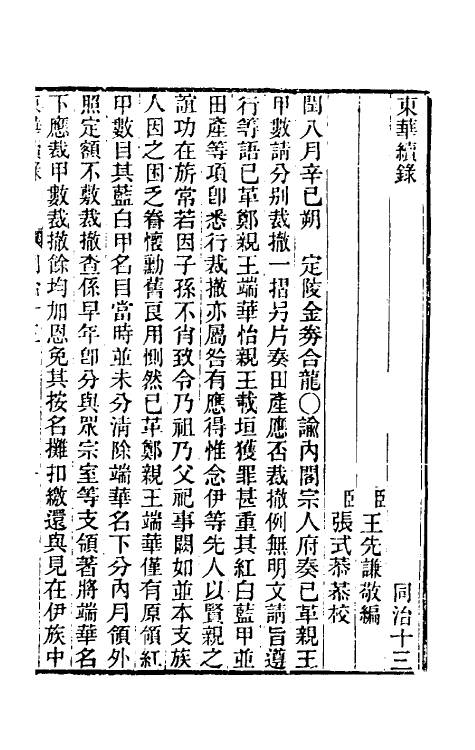 東華續錄　同治十三
臣王先謙敬編
臣張式恭恭校
閏八月辛巳朔　定陵金券合龍〇諭內閣宗人府奏已革親王
甲數請分别裁撤一摺另片奏田產應否裁撤例無明文請旨遵
行等語已革鄭親王端華怡親王載垣獲罪甚重其紅白藍甲並
田產等項卽悉行裁撤亦屬咎有應得惟念伊等先人以賢親之
誼功在旂常若因子孫不肖致令乃祖乃父祀事闕如並本支族
人因之困乏眷懷勳舊良用惻然已革鄭親王端華僅有原領紅
甲數目其藍白甲名目當時並未分清除端華名下分內月領外
照定額不敷裁撤查係早年卽分與眾宗室等支領著將端華名
下應裁甲數裁撤餘均加恩免其按名攤扣繳還與見在伊族中
東華續錄　同治十三